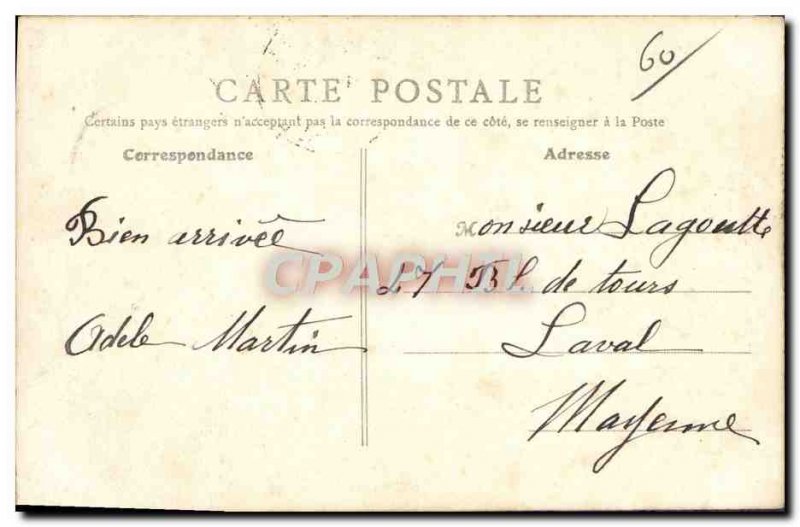 60
CARTE POSTALE
Certains pays étrangers n'acceptant pas la correspondance de ce côté, se renseigner à la Poste
Correspondance
Adresse
Bien arrivée
Adele Martin
Monsieur Lagoutte
27 Bl. de tours
Laval
Mayenne
CPAPHIL